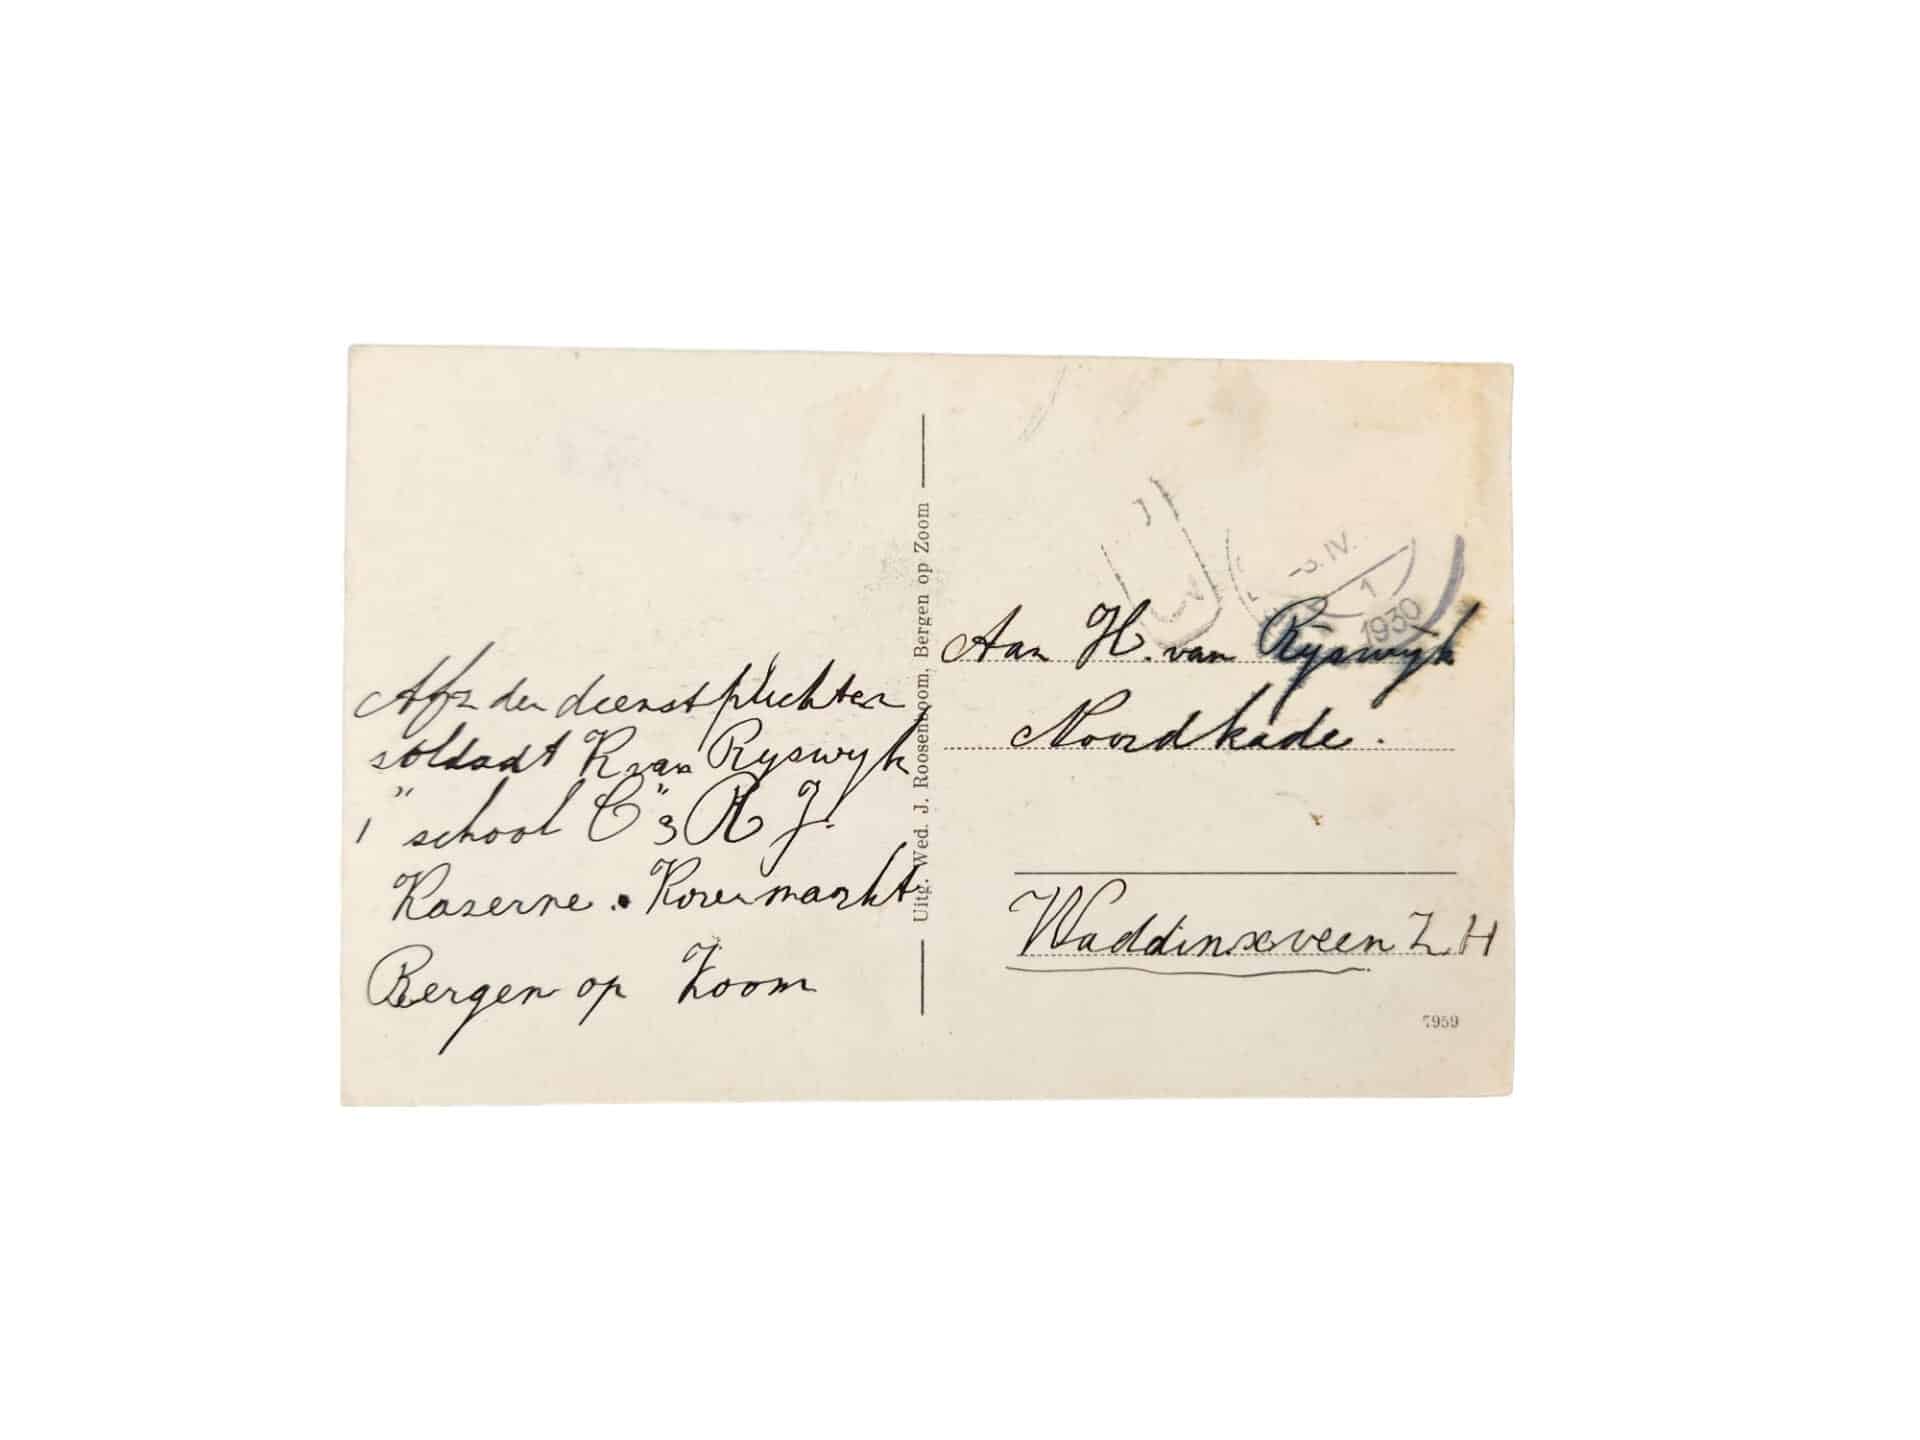 Afz den dienstplichten
soldaat K van Ryswyk
1" school C" 3 R J.
Kazerne. Korenmarkt
Bergen op Zoom
Uitg. Wed. J. Roosenboom, Bergen op Zoom
-3.IV.
1
1930
Aan H. van Ryswyk
Noordkade.
Waddinxveen Z H
7959